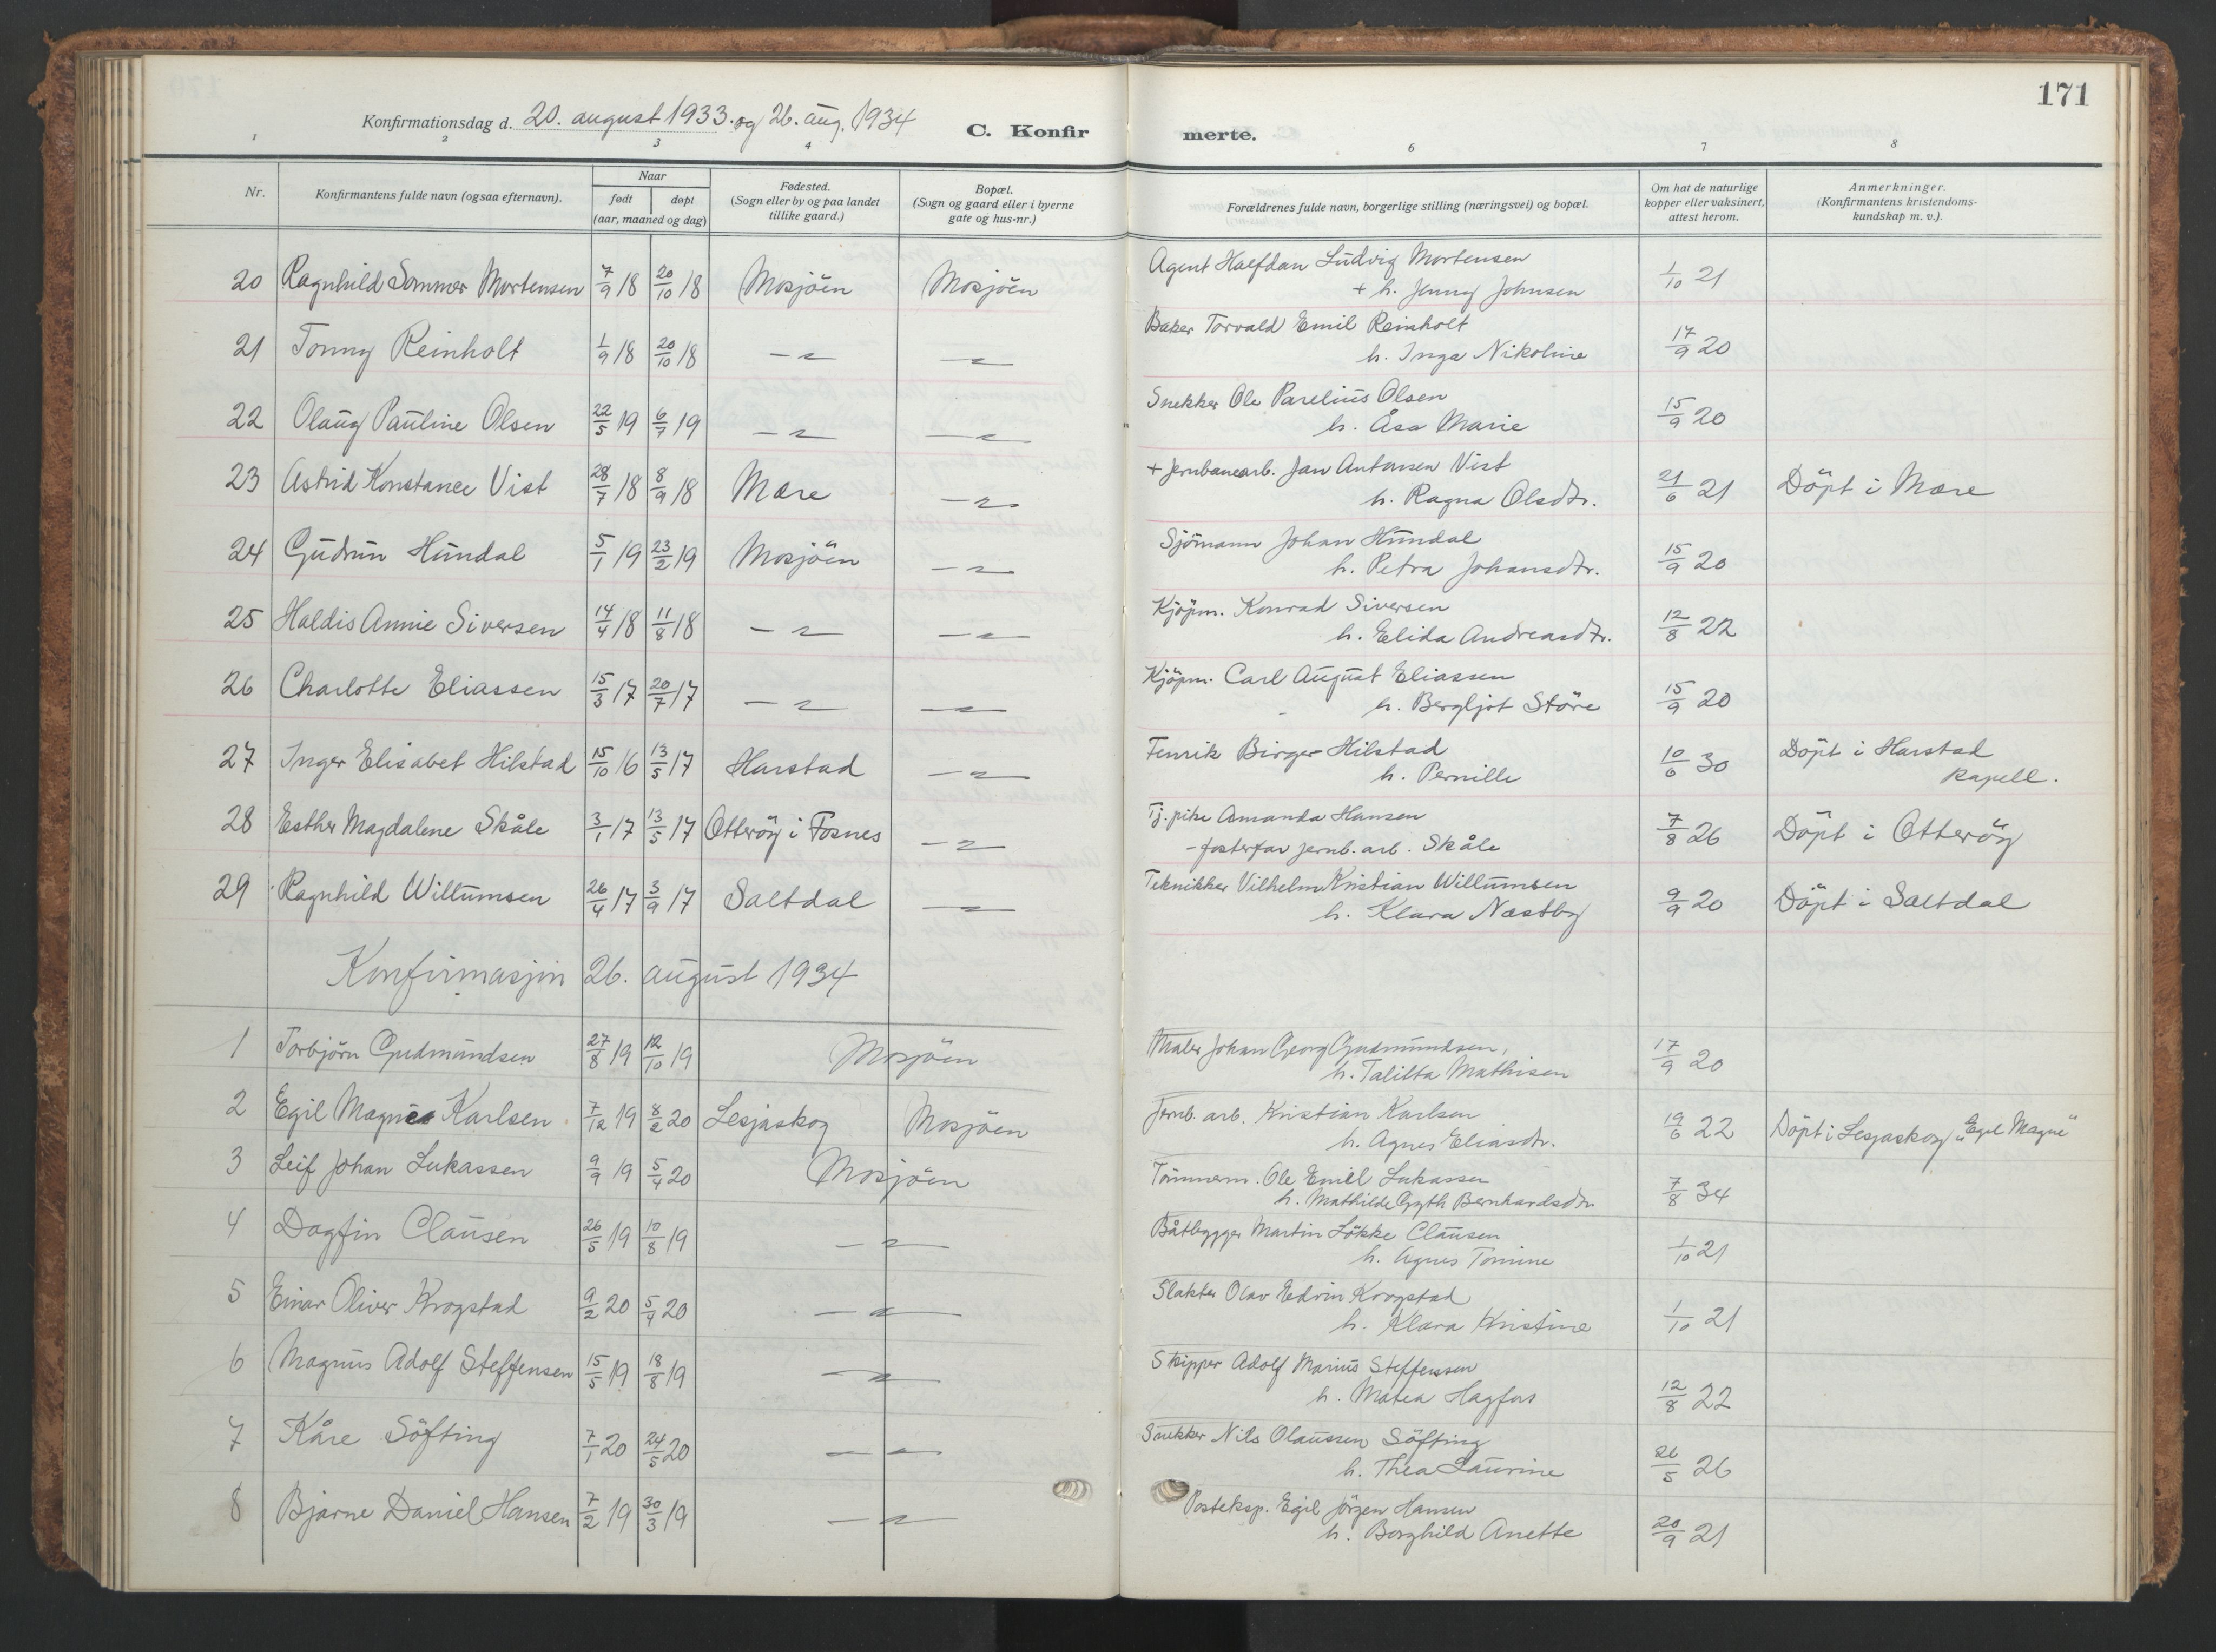 171
Konfirmationsdag d. 20. august 1933. og 26. aug. 1934
C. Konfir merte.
1 2 3 4 6 7 8
Nr.
Konfirmantens fulde navn (ogsaa efternavn).
Naar
født døpt
(aar, maaned og dag)
Fødested.
(Sogn eller by og paa landet
tillike gaard.)
Bopæl.
(Sogn og gaard eller i byerne
gate og hus-nr.)
Forældrenes fulde navn, borgerlige stilling (næringsvei) og bopæl.
Om hat de naturlige
kopper eller vaksinert,
attest herom.
Anmerkninger.
(Konfirmantens kristendoms-
kundskap m. v.).
20 Ragnhild Sommer Mortensen 7/9 18 20/10 18 Mosjöen Mosjöen Agent Halfdan Ludvig Mortensen
+ h. Jenny Johnsen 1/10 21
21 Tonny Reinholt 1/9 18 20/10 18 —"— —"— Baker Torvald Emil Reinholt
h. Inga Nikoline 17/9 20
22 Olaug Pauline Olsen 22/5 19 6/7 19 —"— —"— Snekker Ole Parelius Olsen
h. Åsa Marie 15/9 20
23 Astrid Konstance Vist 28/7 18 8/9 18 Mære —"— + Jernbanearb. Jan Antonsen Vist
h. Ragna Olsdtr. 21/6 21 Döpt i Mære
24 Gudrun Hundal 5/1 19 23/2 19 Mosjöen —"— Sjömann Johan Hundal
h. Petra Johansdtr. 15/9 20
25 Haldis Annie Siversen 14/4 18 11/8 18 —"— —"— Kjöpm. Konrad Siversen
h. Elida Andreasdtr. 12/8 22
26 Charlotte Eliassen 15/3 17 20/7 17 —"— —"— Kjöpm. Carl August Eliassen
h. Bergljot Störe 15/9 20
27 Inger Elisabet Hilstad 15/10 16 13/5 17 Harstad —"— Fenrik Birger Hilstad
h. Pernille 10/6 30 Döpt i Harstad
kapell.
28 Esther Magdalene Skåle 3/1 17 13/5 17 Otteröy i Fosnes —"— Tj. pike Amanda Hansen
- fosterfar jernb. arb. Skåle 7/8 26 Döpt i Otteröy
29 Ragnhild Willumsen 26/4 17 3/9 17 Saltdal —"— Teknikker Vilhelm Kristian Willumsen
h. Klara Næstby 9/9 20 Döpt i Saltdal
Konfirmasjon 26. august 1934
1 Torbjörn Gudmundsen 27/8 19 12/10 19 Mosjöen Maler Johan Georg Gudmundsen,
h. Talitta Mathisen 17/9 20
2 Egil Magnes Karlsen 7/12 19 8/2 20 Lesjaskog Mosjöen Jernb. arb. Kristian Karlsen
h. Agnes Eliasdtr. 19/6 22 Döpt i Lesjaskog "Egil Magne"
3 Leif Johan Lukassen 9/9 19 5/4 20 Mosjöen Tömmerm. Ole Emil Lukassen
h. Mathilde Gyth Bernhardsdtr 7/8 34
4 Dagfin Clausen 26/5 19 10/8 19 —"— Båtbygger Martin Lökke Clausen
h. Agnes Tomine 1/10 21
5 Einar Oliver Krogstad 9/2 20 5/4 20 —"— Slakter Olav Edvin Krogstad
h. Klara Kristine 1/10 21
6 Magnus Adolf Steffensen 15/5 19 18/8 19 —"— Skipper Adolf Marius Steffensen
h. Matea Hagfors 12/8 22
7 Kåre Söfting 7/1 20 24/5 20 —"— Snekker Nils Olaussen Söfting
h. Thea Laurine 26/5 26
8 Bjarne Daniel Hansen 7/2 19 30/3 19 —"— Posteksp. Egil Jörgen Hansen
h. Borghild Anette 20/9 21